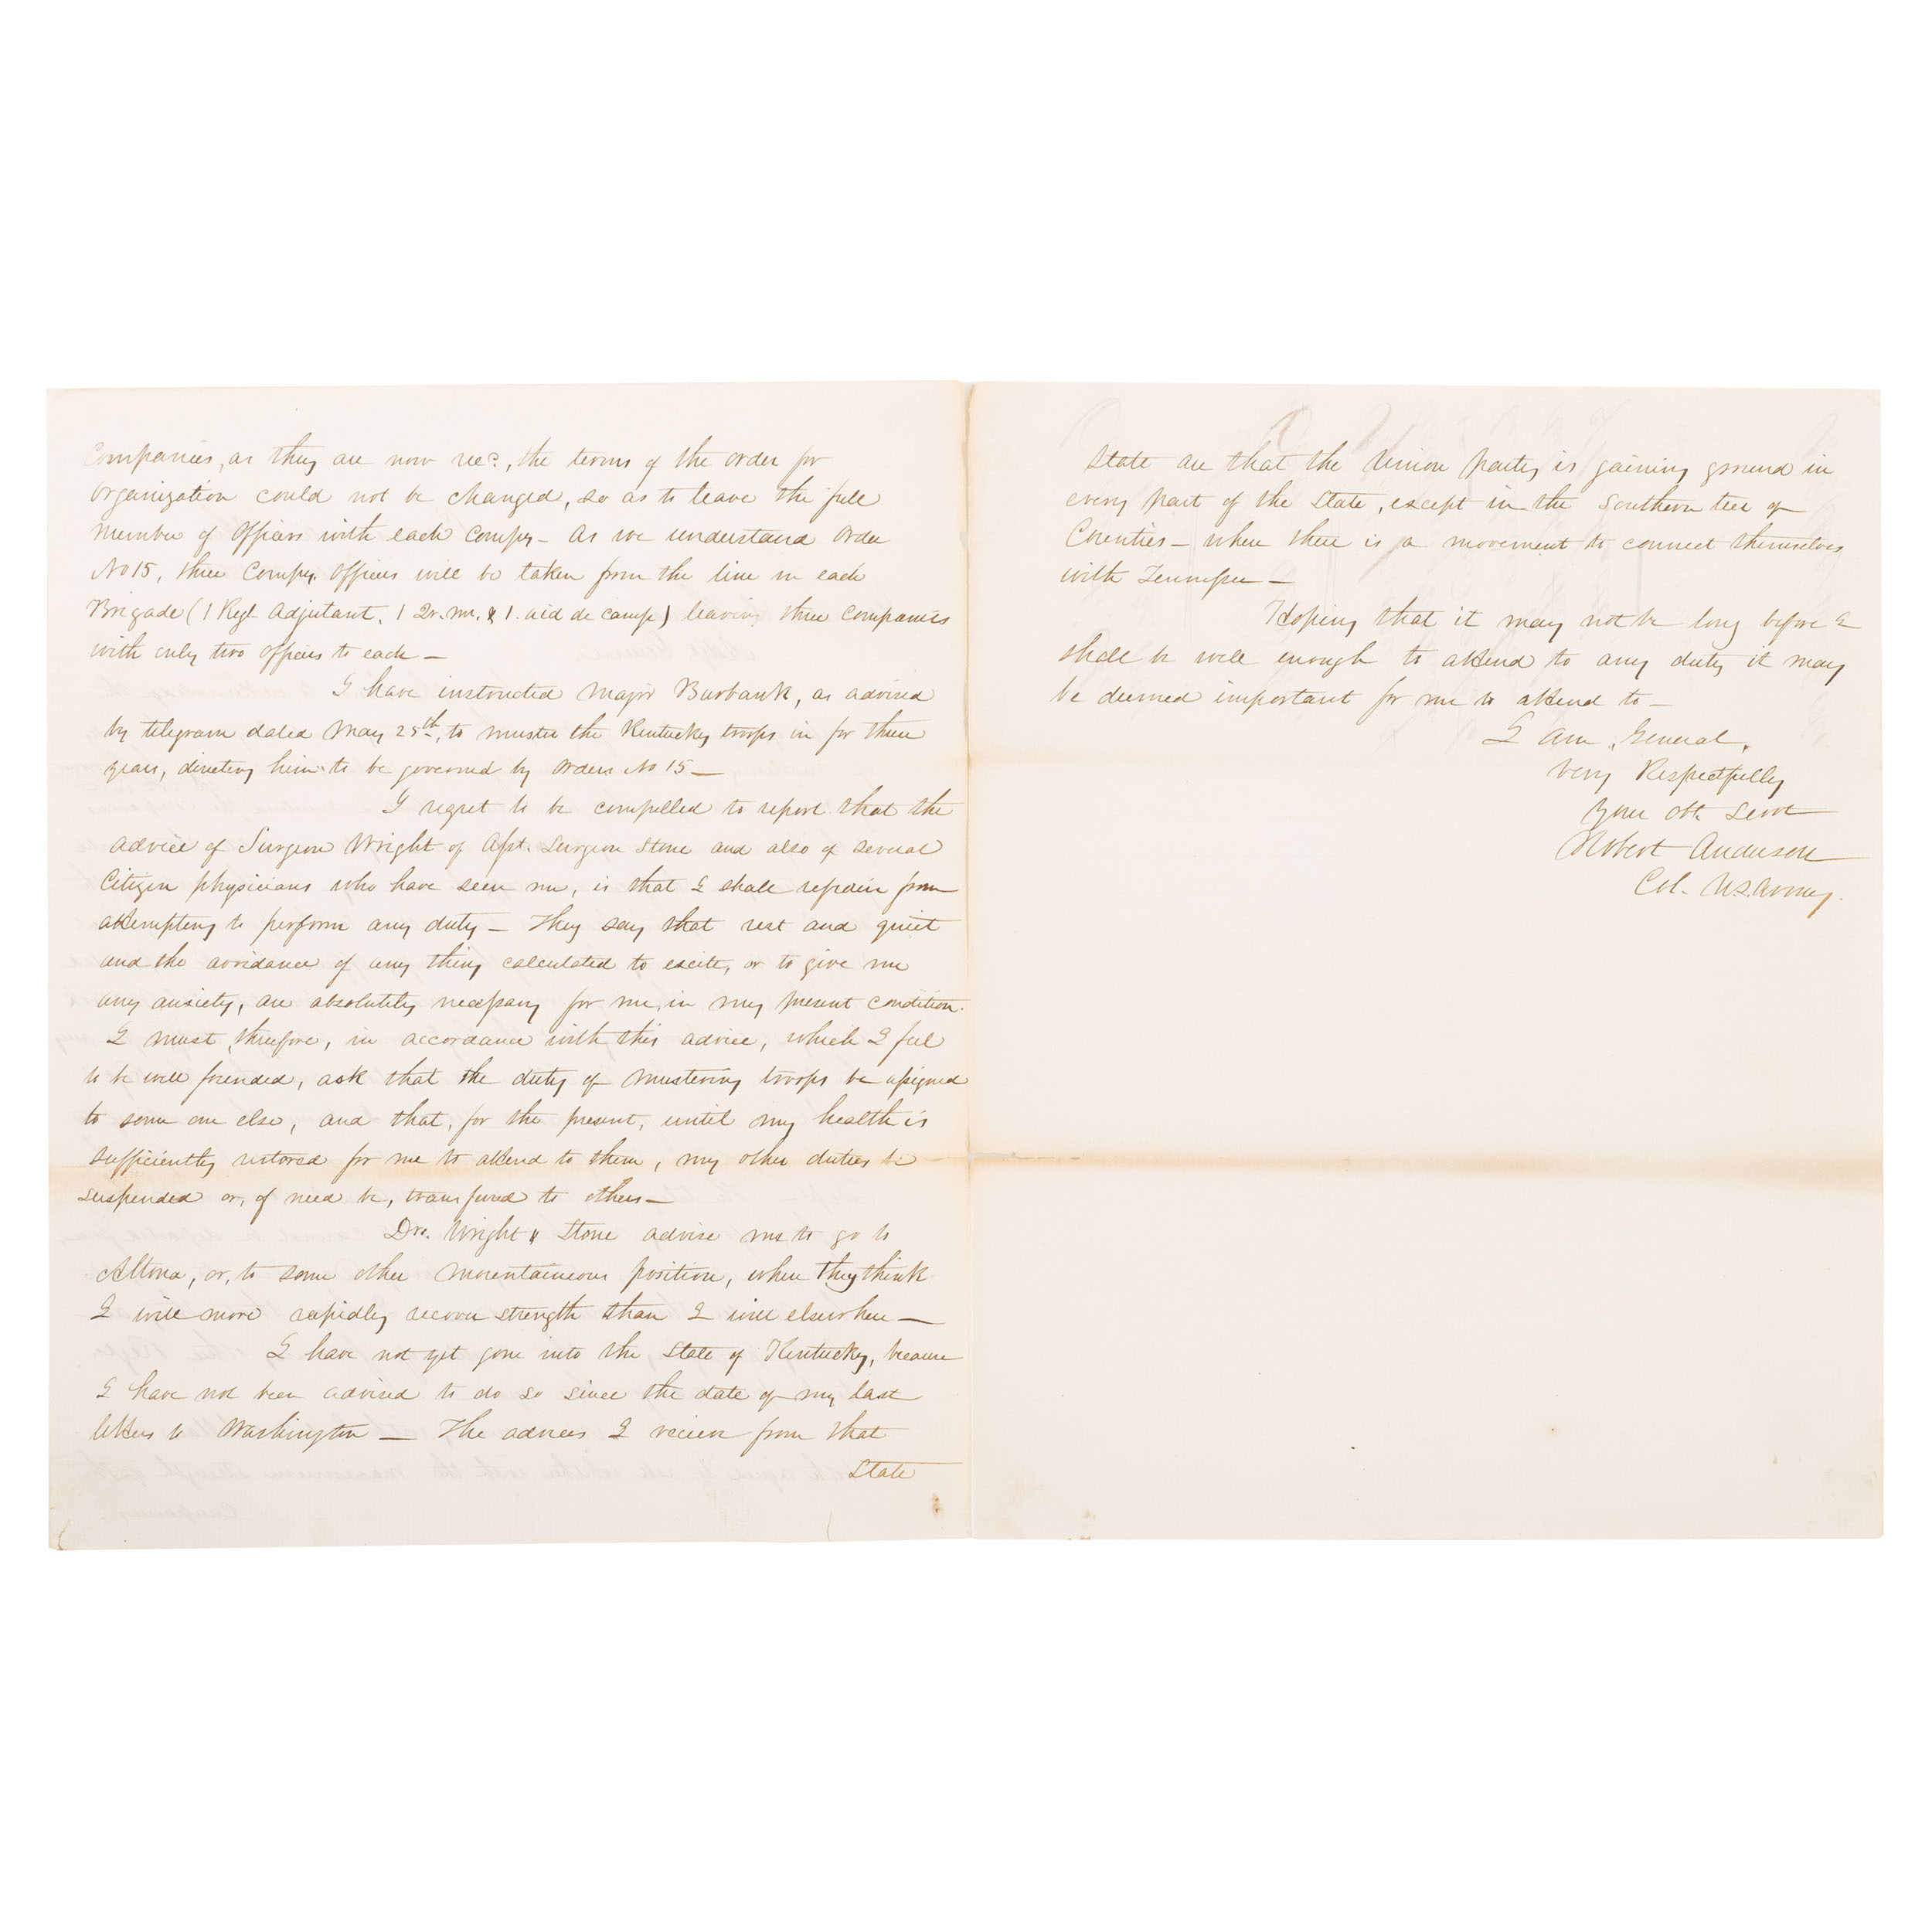 Companies, as they are now recd., the terms of the order for
organization could not be changed, so as to leave the full
number of officers with each Compy - As we understand order
No 15, three Compy. officers will be taken from the line in each
Brigade (1 Regl. Adjutant, 1 Qr. Mr. & 1. aid de camp) leaving three companies
with only two officers to each —
I have instructed Major Burbank, as advised
by telegram dated May 25th, to muster the Kentucky troops in for three
years, directing him to be governed by orders No 15 —
I regret to be compelled to report that the
advice of Surgeon Wright of Asst. Surgeon Stone and also of several
Citizen physicians who have seen me, is that I shall refrain from
attempting to perform any duty — They say that rest and quiet
and the avoidance of any thing calculated to excite, or to give me
any anxiety, are absolutely necessary for me, in my present condition.
I must, therefore, in accordance with this advice, which I feel
to be well founded, ask that the duty of mustering troops be assigned
to some one else, and that, for the present, until my health is
sufficiently restored for me to attend to them, my other duties be
suspended or, if need be, transferred to others —
Drs. Wright & Stone advise me to go to
Altona, or, to some other mountaineous position, where they think
I will more rapidly recover strength than I will elsewhere —
I have not yet gone into the State of Kentucky, because
I have not been advised to do so since the date of my last
letters to Washington — The advices I receive from that
State
State are that the Union party is gaining ground in
every part of the State, except in the Southern tier of
Counties — where there is a movement to connect themselves
with Tennessee —
Hoping that it may not be long before I
shall be well enough to attend to any duty it may
be deemed important for me to attend to —
I am, General,
Very Respectfully
Your obt. Servt
Robert Anderson
Col. U.S. Army.